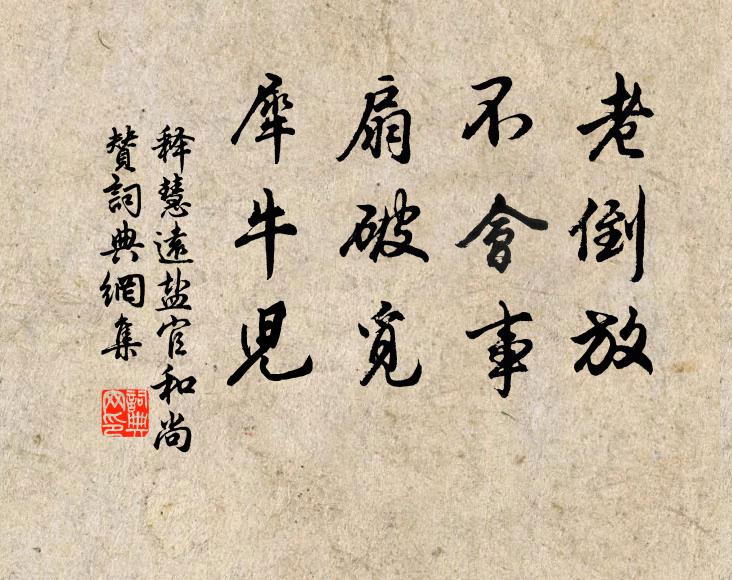 老倒放
不會事
扇破覓
犀牛児
释慧遠盐官和尚
贊詞典網集
詞典
网印